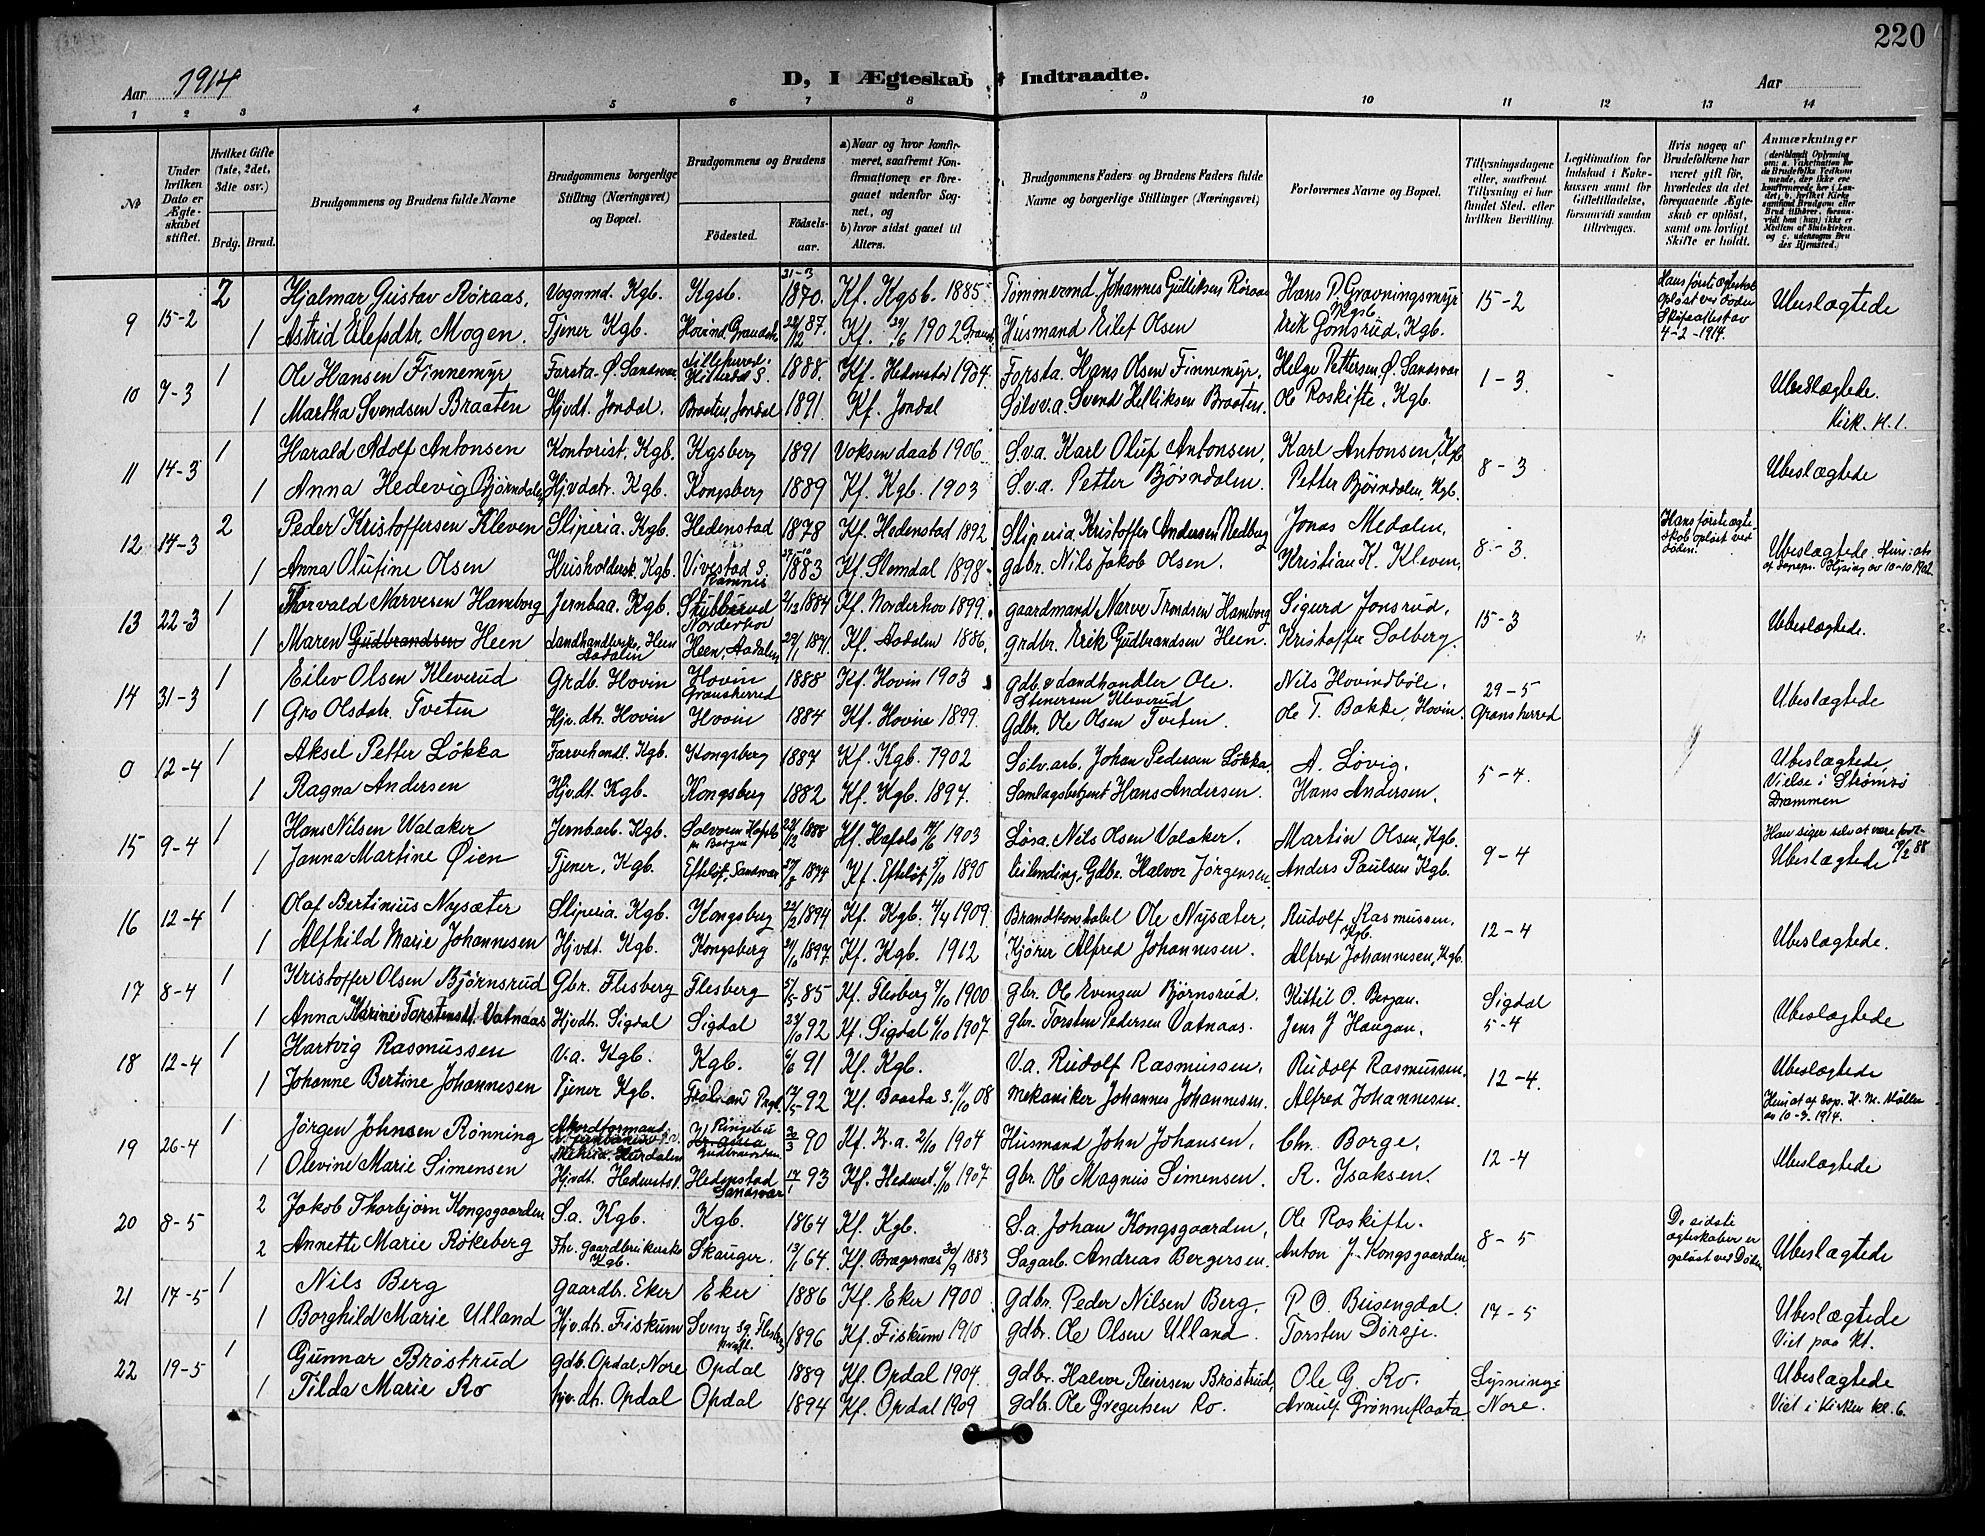 220
Aar 1914
D, I Ægteskab Indtraadte.
Aar
1 2 3 4 5 6 7 8 9 10 11 12 13 14
No
Under hvilken Dato er Ægteskabet stiftet.
Hvilket Gifte (1ste, 2det, 3die osv.)
Brdg. Brud.
Brudgommens og Brudens fulde Navne
Brudgommens borgerlige Stilling (Næringsvei) og Bopæl.
Brudgommens og Brudens
Fødested. Fødselsaar.
a) Naar og hvor konfirmeret, saafremt Konfirmationen er foregaaet udenfor Sognet, og
b) hvor sidst gaaet til Alters.
Brudgommens Faders og Brudens Faders fulde Navne og borgerlige Stillinger (Næringsvei)
Forlovernes Navne og Bopæl.
Tillysningsdagene eller, saafremt Tillysning ei har fundet Sted, efter hvilken Bevilling.
Legitimation for Indskud i Enkekassen samt for Giftetilladelse, forsaavidt saadan tiltrænges.
Hvis nogen af Brudefolkene har været gift før, hvorledes da det foregaaende Ægteskab er opløst, samt om lovligt Skifte er holdt.
Anmærkninger
9 15-2 2 Hjalmar Gustav Røraas, Vognmd. Kgb. Kgsb. 31-3 1870. Kf. Kgsb. 1885 Tømmermd. Johannes Gulliksen Røraas Hans P. Gravningsmyr Kgsb. 15-2 Hans første ægteskab opløst ved døden Skifteattest av 4-2-1914. Ubeslægtede
1 Astrid Eilefsdtr. Mogen. Tjener Kgb. Hovind, Gransh. 22/12 87. Kf. 29/6 1902 Gransh. Husmand Eilef Olsen Erik Gomsrud, Kgb.
10 7-3 1 Ole Hansen Finnemyr Forsta. Ø. Sandsvær. 1888. Kf. Hedenstad 1904. Forsta. Hans Olsen Finnemyr. Helge Pettersen, Ø. Sandsvær 1-3 Ubeslægtede.
1 Martha Svendsen Braaten Hjvdt. Jondal. Braaten, Jondal 1891. Kf. Jondal Sølvv.a. Svend Helliksen Braaten. Ole Roskifte, Kgb. Kirk. kl. 1.
11 14-3 1 Harald Adolf Antonsen Kontorist. Kgb. Kgsberg 1891 Voksen daab 1906. S.v.a. Karl Oluf Antonsen, Karl Antonsen, Kgb 8-3 Ubeslægtede
1 Anna Hedevig Bjørndalen Hjvdatr. Kgb. Kongsberg 1889 Kf. Kgb. 1903 S.v.a. Petter Bjørndalen. Petter Bjørndalen, Kgb.
12 14-3 2 Peder Kristoffersen Kleven Sliperia. Kgb. Hedenstad 1878 Kf. Hedenstad 1892 Sliperia. Kristoffer Andersen Nedberg Jonas Medalen, 8-3 Hans første ægteskab opløst ved døden.
1 Anna Olufine Olsen Husholdersk. Kgb. Vivestad S. Ramnes 1883 Kf. Slemdal 1898 gdbr. Nils Jakob Olsen. Kristian K. Kleven, Ubeslægtede.
13 22-3 1 Thorvald Narvesen Hamborg Jernbaa. Kgb. Stubberud Norderhov 2/12 1884 Kf. Norderhov 1899. gaardmand Narve Trondsen Hamborg Sigurd Jonsrud, 15-3 Ubeslægtede.
1 Maren Gudbrandsen Heen Landhandlerske, Heen Aadalen Heen, Aadalen 29/1 1871. Kf. Aadalen 1886. grdbr. Erik Gudbrandsen Heen. Kristoffer Solberg.
14 31-3 1 Eilev Olsen Kleverud Grdb. Hovin Hovin Gransherred 1888 Kf. Hovin 1903 gdb. & Landhandler Ole Steinersen Kleverud Nils Hovindbøle. 29-5 Gransherred Ubeslægtede
1 Gro Olsdatr. Tveten Hjv. dtr. Hovin Hovin 1884 Kf. Hovin 1899. Gdbr. Ole Olsen Tveten. Ole T. Bakke, Hovin.
0 12-4 1 Aksel Petter Løkka Farvehandl. Kgb. Kongsberg 1887 Kf. Kgb. 1902 Sølvarb. Johan Pedersen Løkka. A. Løvig. 5-4. Ubeslægtede, Vielse i Strømsø Drammen
1 Ragna Andersen Hjvdt. Kgb. Kongsberg 1882 Kf. Kgb. 1897. Samlagsbetjent Hans Andersen. Hans Andersen.
15 9-4 1 Hans Nilsen Valaker Jernbarb. Kgb. Solvorn Hafslo pr Bergen 1888 Kf. Hafslo 1903 Løsa. Nils Olsen Valaker. Martin Olsen, Kgb. 9-4 Han siger selv at være født 19/2 88
1 Janna Martine Øien Tjener, Kgb. Efteløt, Sandsvær 1874 Kf. Efteløt 5/10 1890 leilending, Gdbr. Halvor Jørgensen. Anders Paulsen Kgb. Ubeslægtede
16 12-4 1 Olaf Bertinius Nysæter Sliperia. Kgb. Kongsberg 1894 Kf. Kgb. 4/4 1909. Brandkonstabel Ole Nysæter, Rudolf Rasmussen. Kgb. 12-4 Ubeslægtede.
1 Alfhild Marie Johannesen Hjvdt. Kgb. Kongsberg 1897. Kf. Kgb. 1912 Kjører Alfred Johannesen. Alfred Johannesen, Kgb.
17 8-4 1 Kristoffer Olsen Bjørnsrud Gbr. Flesberg Flesberg 5/5 85 Kf. Flesberg 7/10 1900 gbr. Ole Evensen Bjørnsrud. Kittil O. Bergan. Sigdal Ubeslægtede
1 Anna Karine Torstensdt. Vatnaas Hjvdtr. Sigdal Sigdal 92 Kf. Sigdal 6/10 1907. gbr. Torsten Pedersen Vatnaas. Jens J Haugan. 5-4
18 12-4 1 Hartvig Rasmussen V.a. Kgb. Kgb. 91 Kf. Kgb. V.a. Rudolf Rasmussen. Rudolf Rasmussen. 12-4. Ubeslægtede
1 Johanne Bertine Johannesen Tjener Kgb. 92 Kf. Baasta S. 11/10 08 Mekaniker Johannes Johannesen. Alfred Johannesen.
19 26-4 1 Jørgen Johnsen Rønning Akordformand, Ringebu Gudbrandsd. 90 Kf. Kr.a. 2/10 1904 Husmand John Johansen, Chr. Borge, 12-4 Ubeslægtede
1 Olevine Marie Simensen Hjvdt. Hedenstad. Hedenstad Sandsvær 93 Kf. Hedenst. 1907. gbr. Ole Magnus Simensen. R. Isaksen.
20 8-5 2 Jakob Thorbjørn Kongsgaarden S.a. Kgb. Kgb. 1864 Kf. Kgb. S.a. Johan Kongsgaarden, Ole Roskifte. 8-5 De sidste ægteskaber er opløst ved Døden Ubeslægtede
2 Annette Marie Røkeberg Kgb. Skauger. 13/1 64. Kf. Bragernæs 30/9 1883 Sagarb. Andreas Bergersen. Anton J. Kongsgaarden.
21 17-5 1 Nils Berg Gaardbr. Eker Eker 1886 Kf. Eker 1900 Gdbr. Peder Nilsen Berg. P. O. Busengdal. 17-5 Ubeslægtede
1 Borghild Marie Ulland Hjv. dtr. Fiskum Svene sg. Flesberg prgjl. 1896 Kf. Fiskum 1910 gdbr. Ole Olsen Ulland. Torsten Dørsje. Viet paa kt.
22 19-5 1 Gunnar Brøstrud gdb. Opdal, Nore Opdal 1889 Kf. Opdal 1904. gdbr. Halvor Reiersen Brøstrud, Ole G. Ro. Lysning i Nore. Ubeslægtede
1 Tilda Marie Ro hjv. dtr. Opdal Opdal 1894 Kf. Opdal 1909 gdbr. Ole Gregertsen Ro. Arnulf Grønneflaata Viet i Kirken kl. 6.